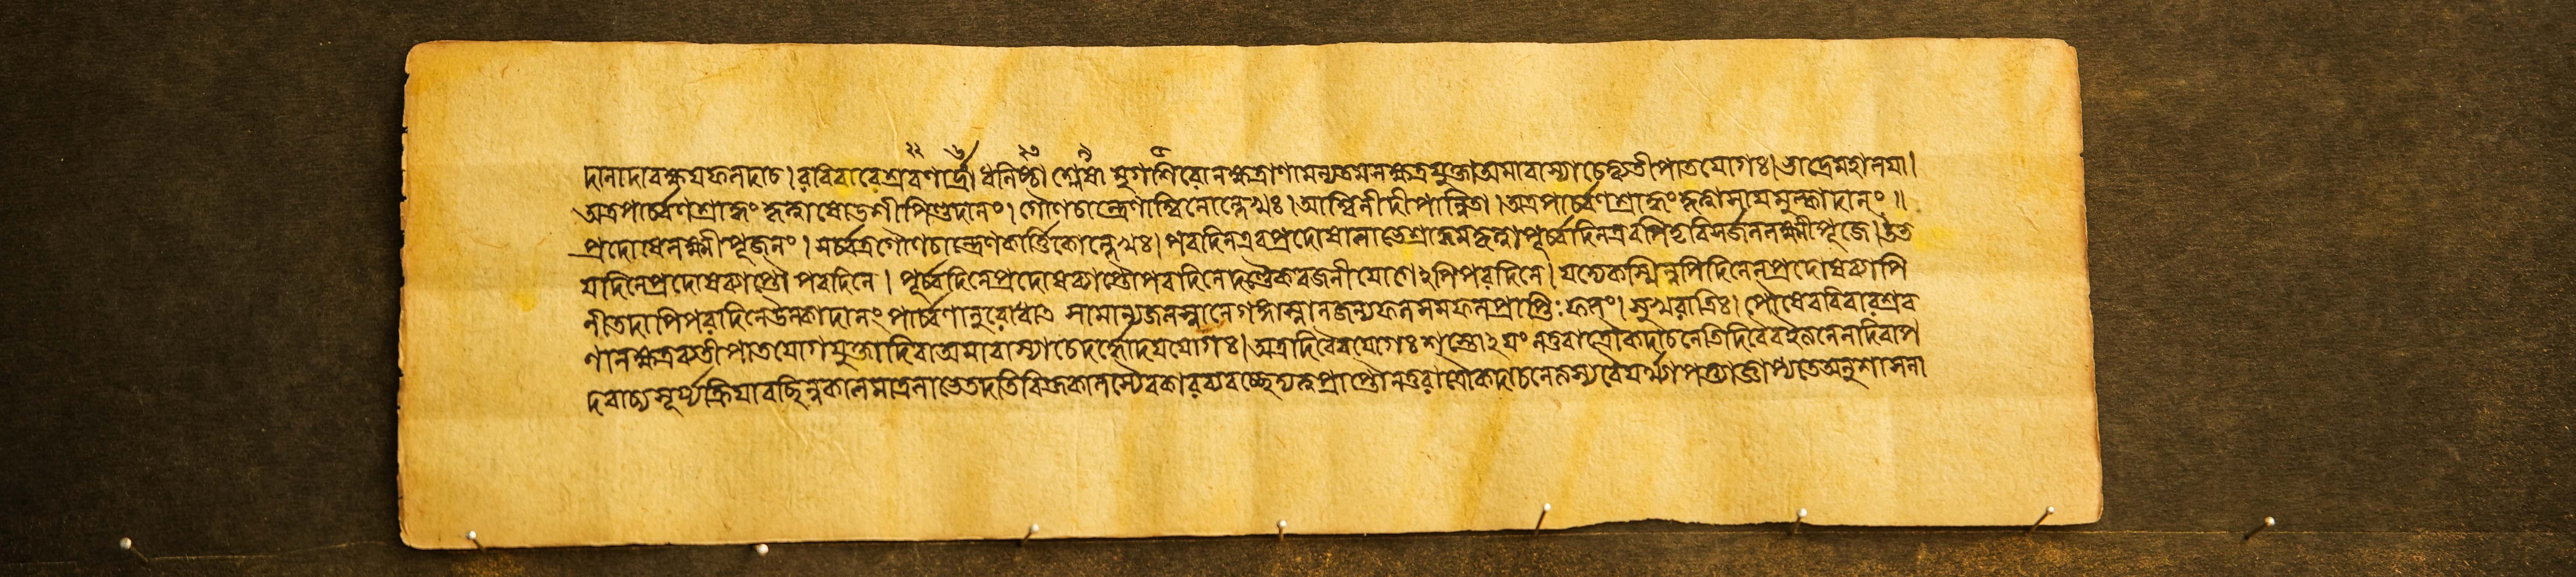 ২২ ৬ ২৩ ৯ ৫
দানাদাবক্ষয়ফলদাচ। রবিবারেশ্রবণার্দ্রা। ধনিষ্ঠা। শ্লেষা মৃগশিরোনক্ষত্রাণামন্যতমনক্ষত্রযুক্তাঅমাবাস্যাচেদ্ব্যতীপাতযোগঃ। ভাদ্রেমহালয়া।
অত্রপার্ব্বণশ্রাদ্ধং কৃত্বাষোড়শীপিণ্ডদানং। গৌণচান্দ্রেণাশ্বিনোল্লেখঃ। আশ্বিনীদীপান্বিতা। অত্রপার্ব্বণশ্রাদ্ধংকৃত্বাসায়মুল্কাদানং॥
প্রদোষেলক্ষ্মীপূজনং। সর্ব্বত্রগৌণচান্দ্রেণকার্ত্তিকোল্লেখঃ। পরদিনএবপ্রদোষলাভেশ্রাদ্ধমকৃত্বাপূর্ব্বদিনএবপিতৃবিসর্জনলক্ষ্মীপূজে।
যদিনেপ্রদোষব্যাপ্তৌ পরদিনে। পূর্ব্বদিনেপ্রদোষব্যাপ্তৌপরদিনেদণ্ডৈকরজনীযোগেঽপিপরদিনে। যদ্যেকস্মিন্নপিদিনেনপ্রদোষব্যাপি
নীতদাপিপরদিনেউল্কাদানং পার্ব্বণানুরোধাৎ সামান্যজলস্নানেগঙ্গাস্নানজন্যফলসমফলপ্রাপ্তিঃফলং। সুখরাত্রিঃ। পৌষেরবিবারশ্রব
ণানক্ষত্রব্যতীপাতযোগযুক্তাদিবাঅমাবাস্যাচেদর্দ্ধোদয়যোগঃ। অত্রদিবৈবযোগঃশস্তোঽয়ং নতুরাত্রৌকদাচনেতিদিবৈব
দবাচ্যসূর্য্যক্রিয়াবচ্ছিন্নকালমাত্রলাভে নতুরাত্রৌকদাচনে অনুশাসনা